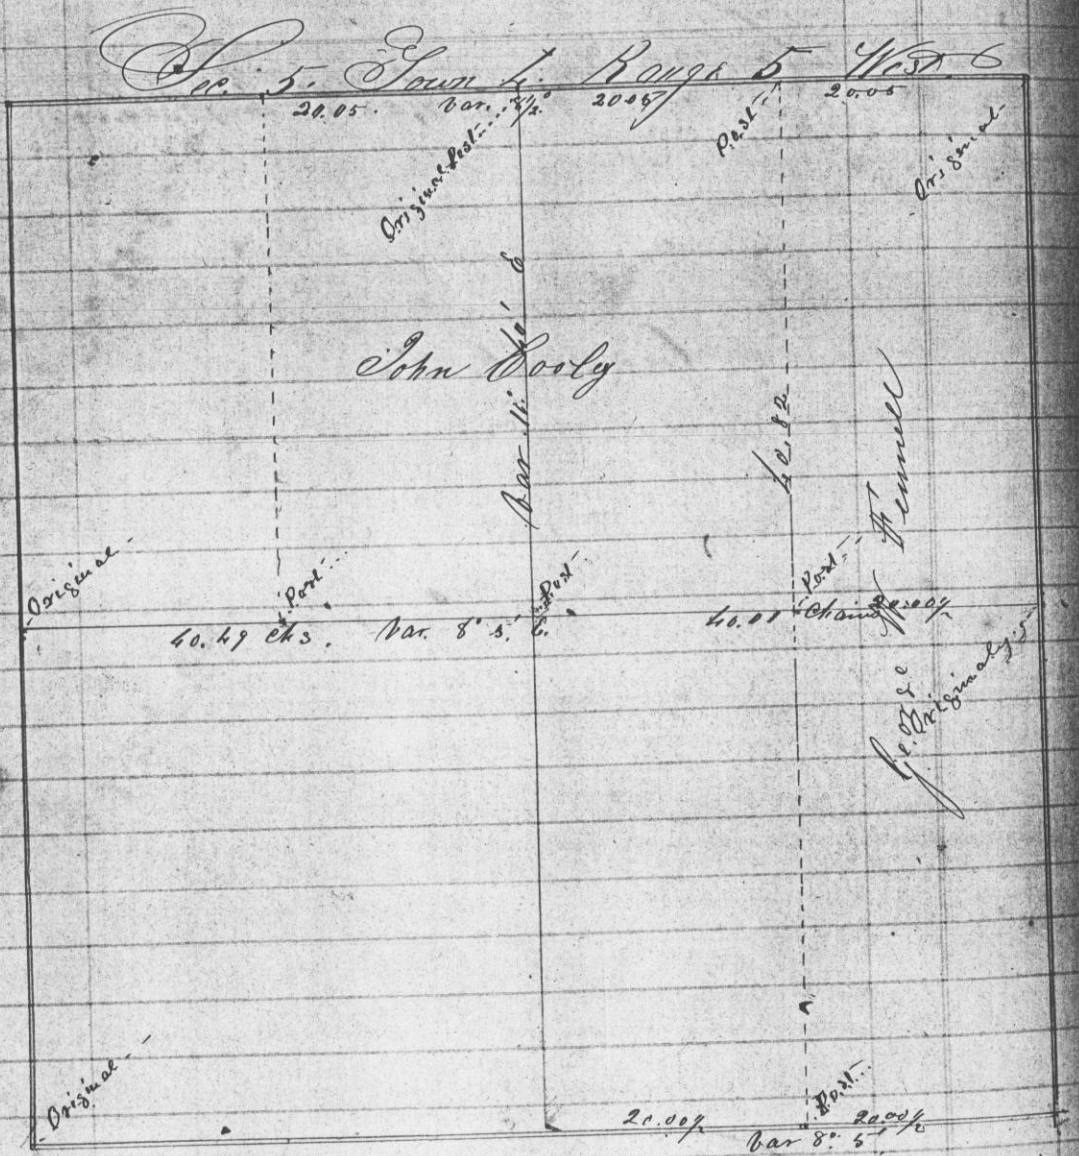 Sec. 5. Town 4. Range 5 West
20.05. Var. 8½° 20.05 20.05
Original Post
Post
Original
John Cooly
Var 11° 40' E
40.82
George Fennell
Original
Post
Post
Post
40.49 chs. Var. 8° 5' E.
40.01 Chains 20.00½
Original
Original
Post
20.00½ 20.00½
Var 8° 5'